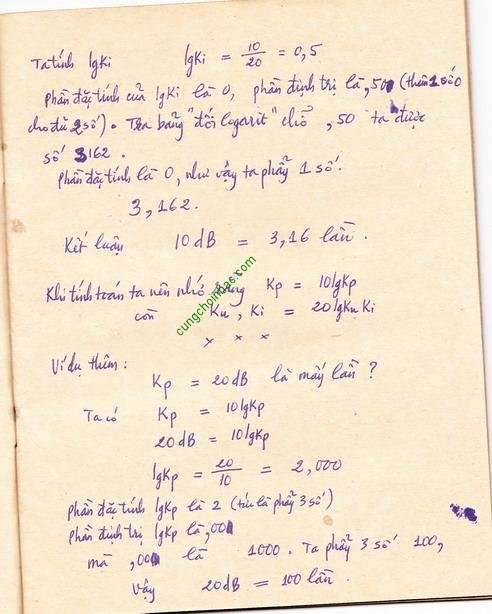 Ta tính lgKi lgKi = 10/20 = 0,5
phần đặc tính của lgKi là 0, phần định trị là ,50 (thêm 1 số 0
cho đủ 2 số). Tra bảng "đối logarit" chỗ ,50 ta được
số 3162.
phần đặc tính là 0, như vậy ta phẩy 1 số.
3,162.
Kết luận 10 dB = 3,16 lần.
Khi tính toán ta nên nhớ rằng Kp = 10lgKp
còn Ku, Ki = 20lgKu Ki
x x x
Ví dụ thêm:
Kp = 20dB là mấy lần ?
Ta có Kp = 10lgKp
20dB = 10lgKp
lgKp = 20/10 = 2,000
phần đặc tính lgKp là 2 (tức là phẩy 3 số)
phần định trị lgKp là ,00
mà ,00 là 1000. Ta phẩy 3 số 100,
vậy 20dB = 100 lần.
cungchoinhac.com